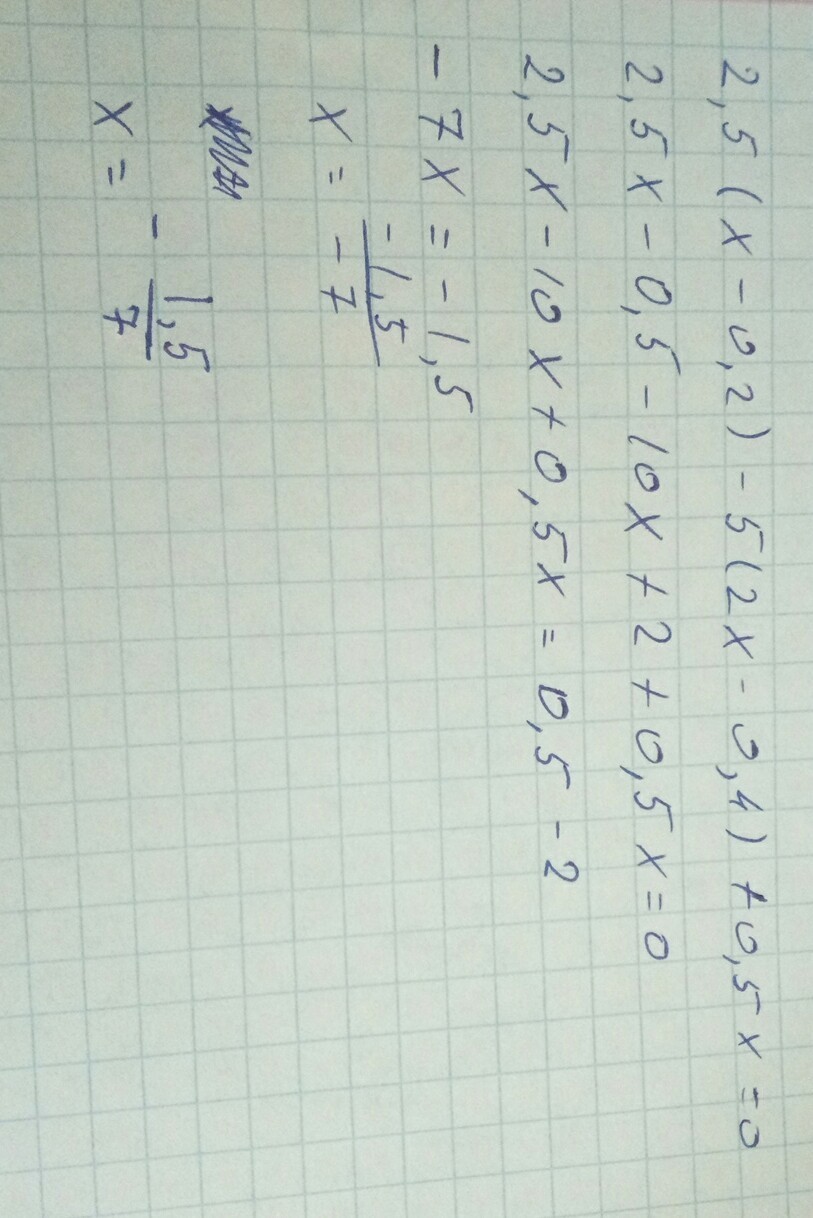 2,5(x-0,2)-5(2x-0,4)+0,5x=0
2,5x-0,5-10x+2+0,5x=0
2,5x-10x+0,5x=0,5-2
-7x=-1,5
x=\frac{-1,5}{-7}
x=-\frac{1,5}{7}